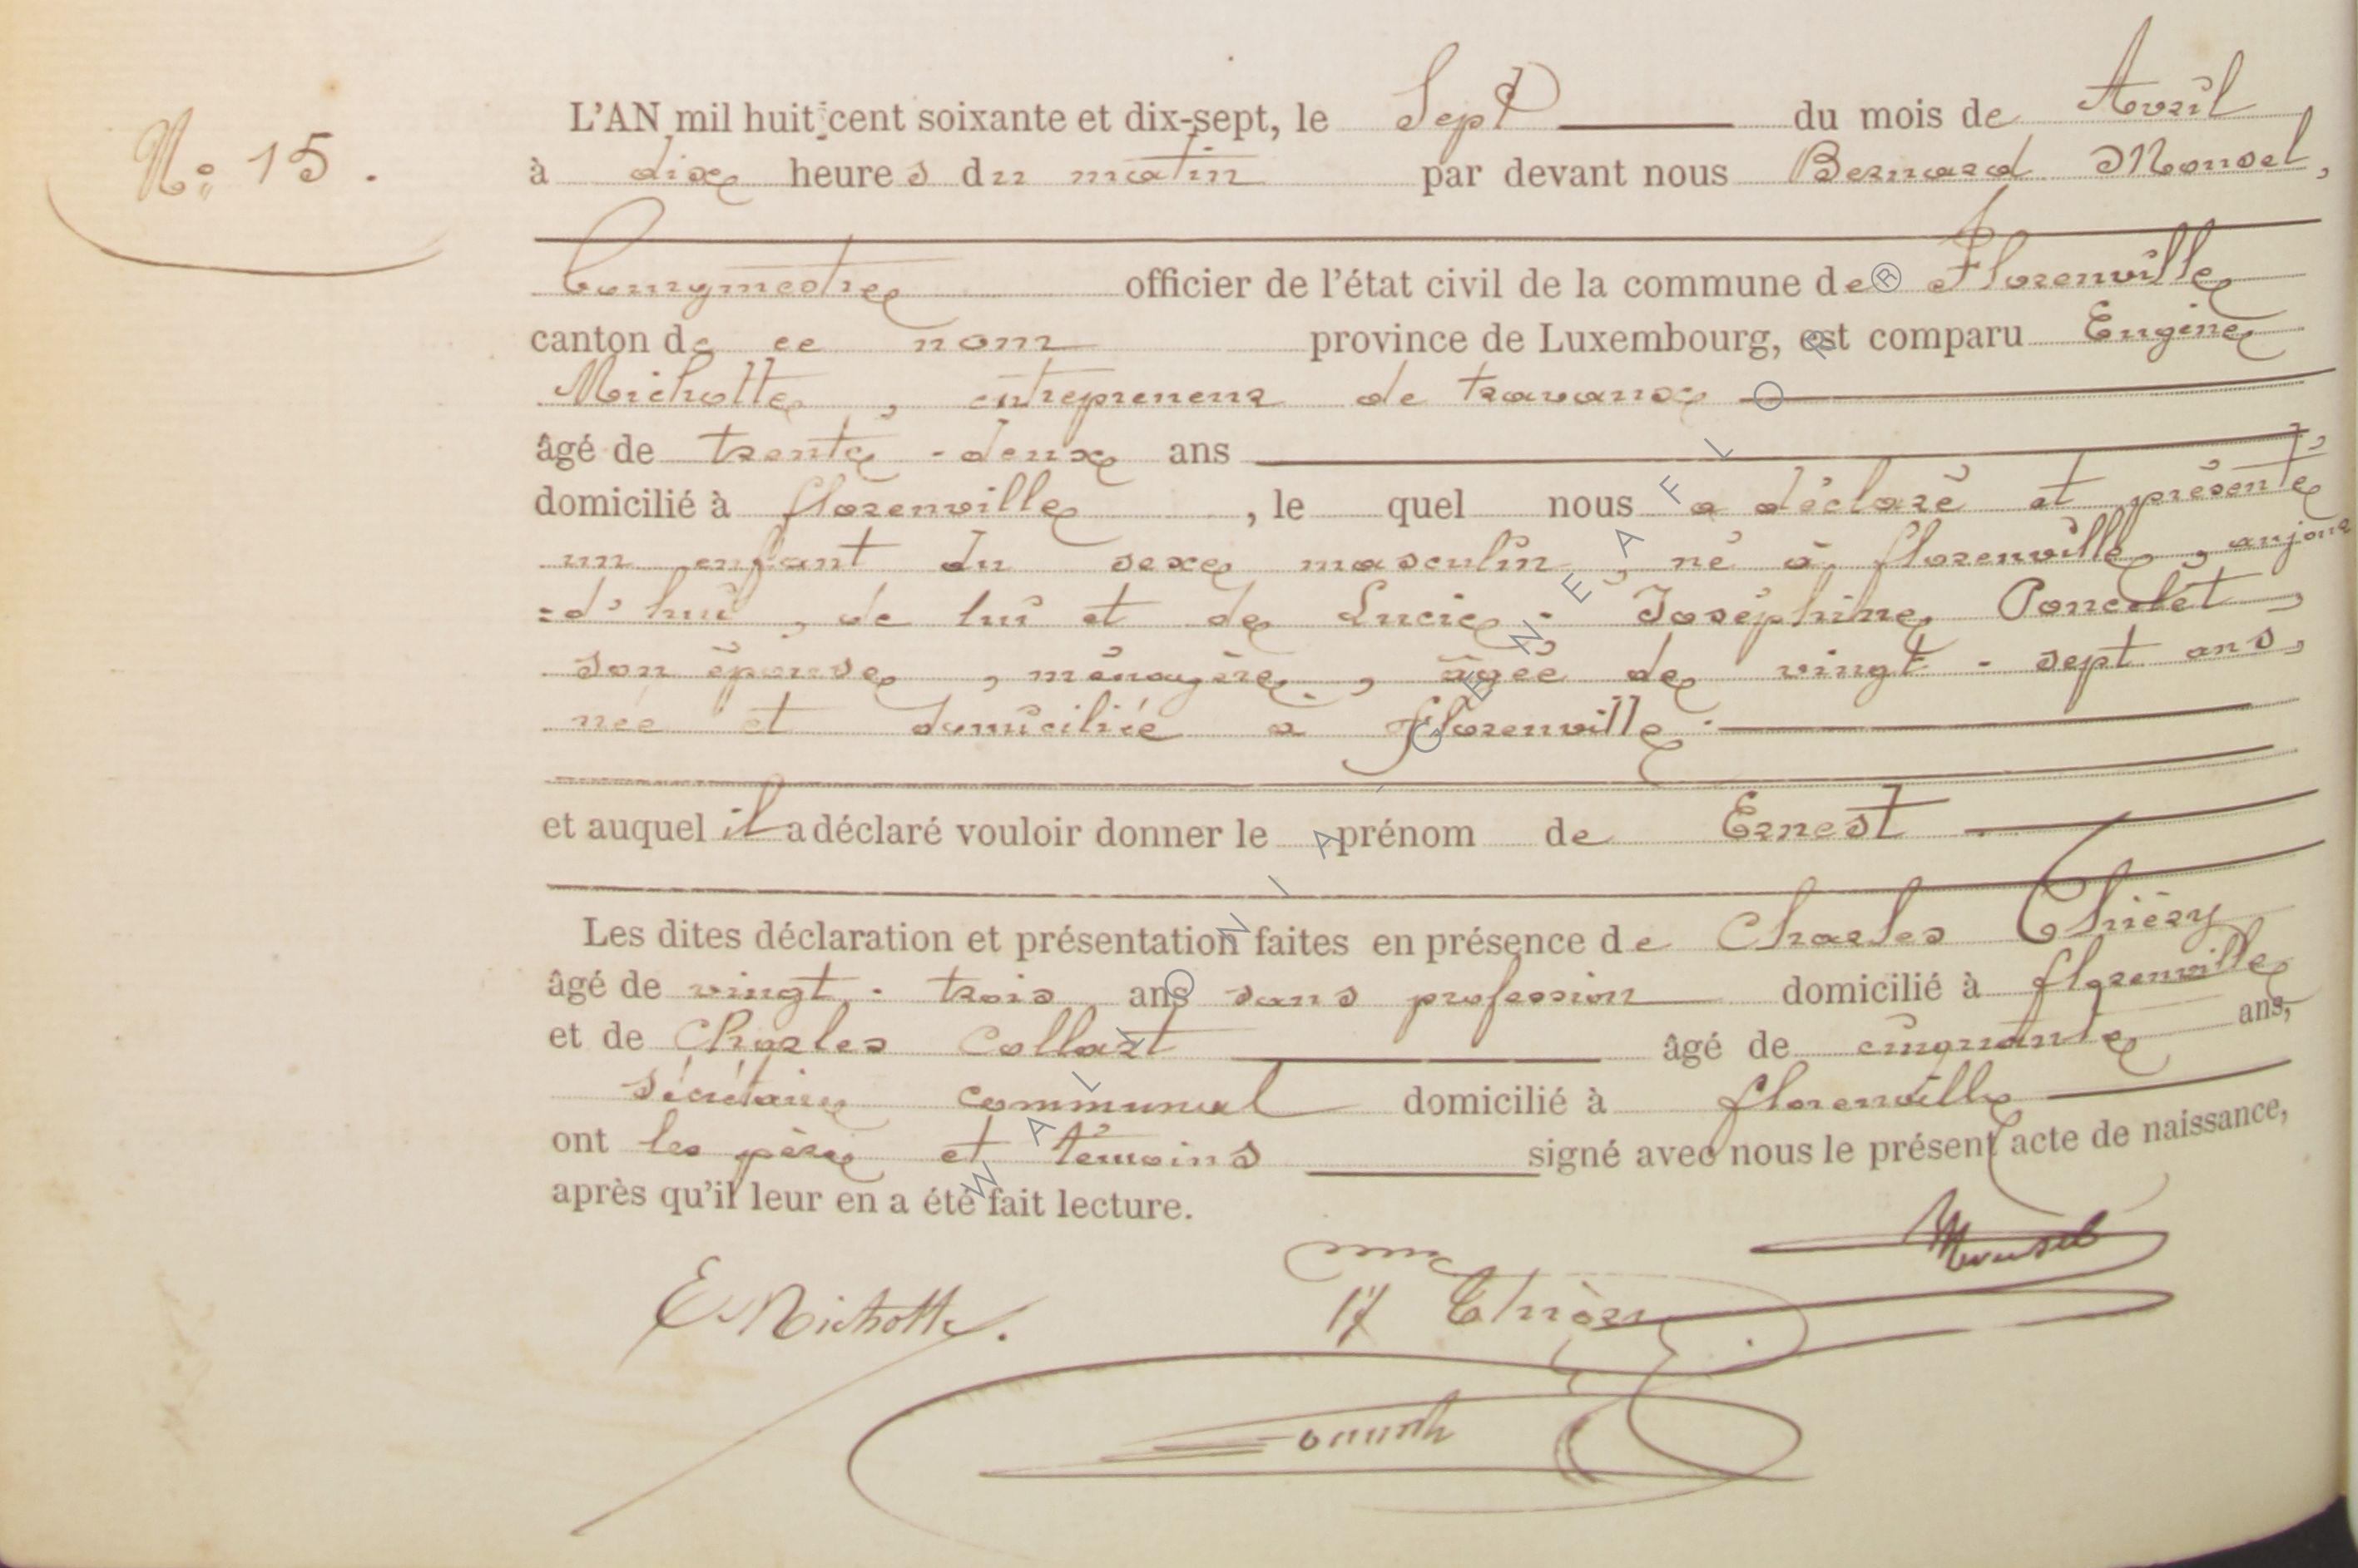 N.° 15.
L'AN mil huit cent soixante et dix-sept, le Sept du mois de Avril
à dix heures du matin par devant nous Bernard Mousel,
bourgmestre officier de l'état civil de la commune de Florenville
canton de ce nom province de Luxembourg, est comparu Eugène
Michotte, entrepreneur de travaux
âgé de trente-deux ans
domicilié à florenville, le quel nous a déclaré et présenté
un enfant du sexe masculin, né à florenville, aujour
=d'hui, de lui et de Lucie-Joséphine Poncelet,
son épouse, ménagère, âgée de vingt-sept ans,
née et domiciliée à florenville.
et auquel il a déclaré vouloir donner le prénom de Ernest
Les dites déclaration et présentation faites en présence de Charles Thiéry
âgé de vingt-trois ans sans profession domicilié à florenville
et de Charles Collart âgé de cinquante ans,
sécrétaire communal domicilié à florenville
ont les père et témoins signé avec nous le présent acte de naissance,
après qu'il leur en a été fait lecture.
E. Michotte. Thiéry Mousel
WALLONIA, GENEAFLOR®